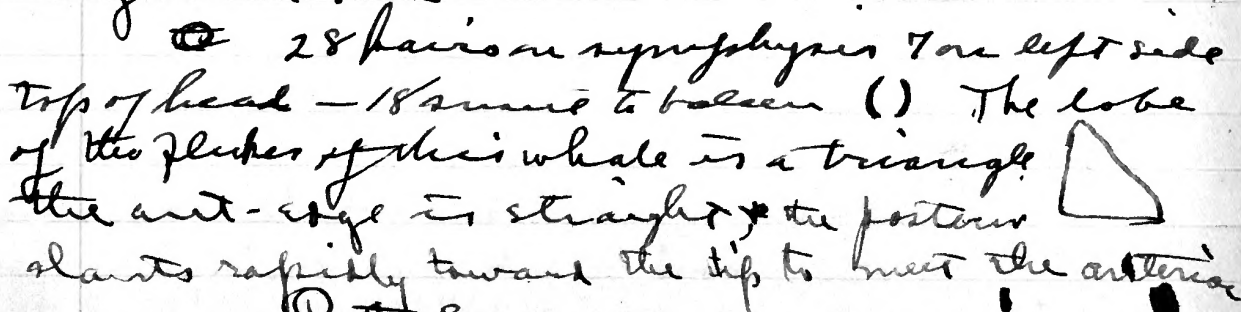 28 hairs on symphysis 7 on left side
top of head — 18 to baleen () The lobe
of the flukes of this whale is a triangle
the ant-edge is straight, the posterior
slants rapidly toward the tip to meet the anterior